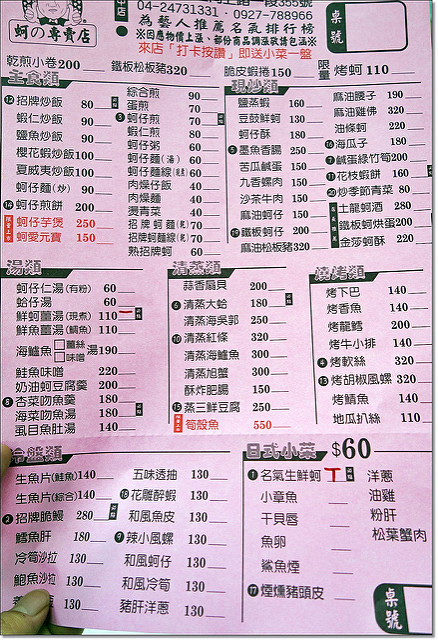 蚵の專賣店
04-24731331、0927-788966
為藝人推薦名氣排行榜
※因應物價上漲、部份商品調漲敬請包涵※
來店「打卡按讚」即送小菜一盤
桌號
乾煎小卷200 鐵板松板豬320 脆皮蝦捲150 限量 烤蚵110
主食類
⑫招牌炒飯 80
蝦仁炒飯 90
鹽魚炒飯 90
櫻花蝦炒飯100
夏威夷炒飯100
蚵仔麵(炒) 90
⑭蚵仔煎餅 200
蚵仔芋煲 250
蚵愛元寶 150
綜合煎 90
蛋煎 70
③蚵仔煎 70
蝦仁煎 80
蚵仔粥 60
蚵仔麵(湯) 60
蚵仔麵線 60
肉燥仔飯 40
肉燥麵 40
燙青菜 40
招牌蚵麵(乾)70
招牌蚵麵線(乾)70
熟招牌蚵 60
現炒類
鹽蒸蝦 160
豆鼓鮮蚵 130
蚵仔酥 180
⑤墨魚香腸 250
苦瓜鹹蛋 150
九香螺肉 150
沙茶牛肉 150
麻油蚵仔 150
⑲鐵板蚵仔 200
麻油松板豬320
麻油腰子 190
麻油雞佛 320
油條蚵 220
⑯海瓜子 180
⑦鹹蛋綠竹筍200
⑪花枝蝦餅 160
⑳炒季節青菜 80
土龍蚵酒 280
鐵板蚵烘蛋200
金莎蚵酥 220
湯類
蚵仔仁湯(有粉) 60
蛤仔湯 60
鮮蚵薑湯(現煮) 110
鮮魚薑湯(鯛魚) 110
海鱸魚 薑絲 味噌 湯190
鮭魚味噌 220
奶油蚵豆腐羹 200
⑧杏菜吻魚羹 180
海菜吻魚湯 180
虱目魚肚湯 140
清蒸類
蒜香扇貝 200
⑥清蒸大蛤 180
清蒸海吳郭 250
⑩清蒸紅條 320
清蒸海鱸魚 300
清蒸旭蟹 300
酥炸肥腸 150
⑮蒸三鮮豆腐 250
筍殼魚 550
燒烤類
烤下巴 140
烤香魚 140
烤龍鱈 200
烤牛小排 140
④烤軟絲 320
⑬烤胡椒風螺 320
烤鯖魚 140
地瓜扒絲 110
冷盤類
生魚片(鮭魚)140
生魚片(綜合)140
②招牌脆鰻 280
鱈魚肝 180
冷筍沙拉 130
鮑魚沙拉 130
130
五味透抽 130
⑱花雕醉蝦 130
和風魚皮 130
⑨辣小風螺 130
和風蚵仔 130
和風冷筍 130
豬肝洋蔥 130
日式小菜 $60
①名氣生鮮蚵
小章魚
干貝唇
魚卵
鯊魚煙
⑰煙燻豬頭皮
洋蔥
油雞
粉肝
松葉蟹肉
桌號